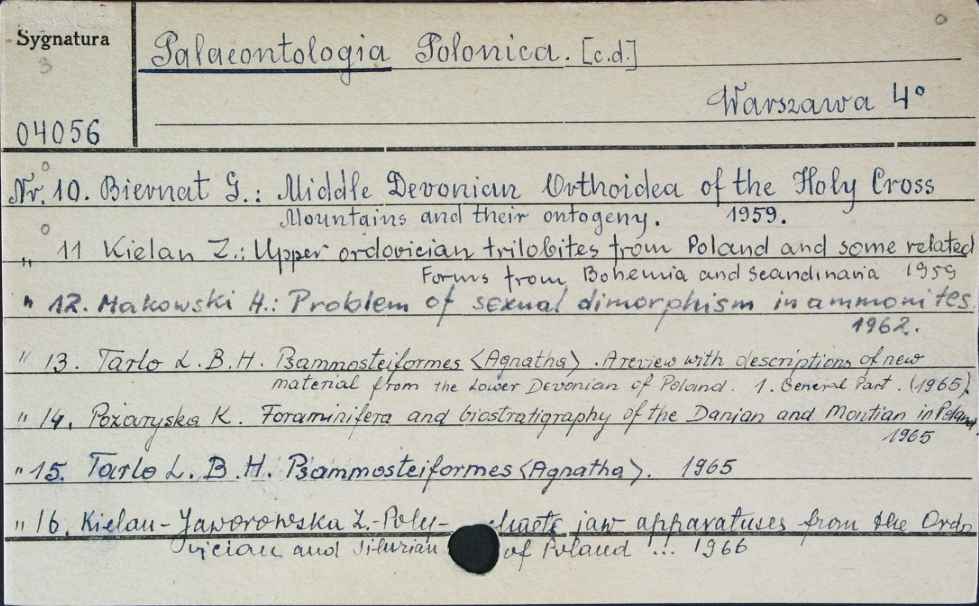 Sygnatura
3
04056
Palaeontologia Polonica. [c.d.]
Warszawa 4°
Nr. 10. Biernat G.: Middle Devonian Orthoidea of the Holy Cross
Mountains and their ontogeny. 1959.
" 11 Kielan Z.: Upper ordovician trilobites from Poland and some related
Forms from Bohemia and Scandinavia 1959
" 12. Makowski H.: Problem of sexual dimorphism in ammonites.
1962.
" 13. Tarlo L.B.H. Psammosteiformes <Agnatha>. A review with descriptions of new
material from the Lower Devonian of Poland. 1. General Part. (1965).
" 14. Pożaryska K. Foraminifera and biostratigraphy of the Danian and Montian in Poland
1965
" 15. Tarlo L. B. H. Psammosteiformes <Agnatha>. 1965
" 16. Kielan-Jaworowska Z.-Poly- chaete jaw apparatuses from the Ordo
vician and Silurian of Poland ... 1966